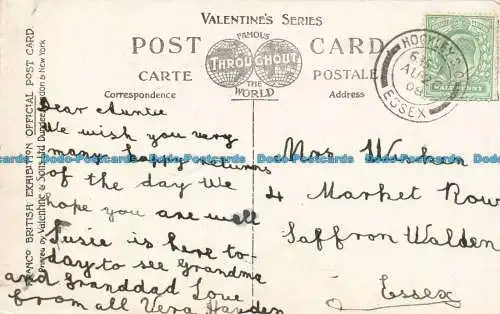 VALENTINE'S SERIES
POST CARD
CARTE POSTALE
FAMOUS
THROUGHOUT
THE
WORLD
Correspondence
Address
FRANCO BRITISH EXHIBITION OFFICIAL POST CARD
Printed by Valentine & Sons Ltd Dundee London & New York
HOCKLEY S.O
AU
08
ESSEX
HALFPENNY
Dear Auntie
We wish you very
many happy returns
of the day We
hope you are well
Susie is here to-
day to see Grandma
and Granddad Love
from all Vera Hayden
Mrs
4 Market Row
Saffron Walden
Essex
Dodo-Postcards Dodo-Postcards Dodo-Postcards Dodo-Postcards Dodo-Postcards